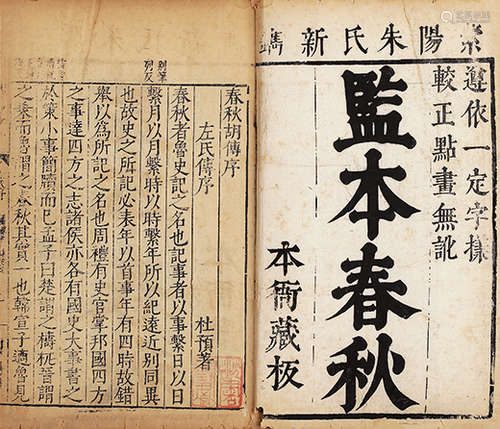 崇陽朱氏新鐫
遵依一定字樣
較正點畫無訛
監本春秋
本衙藏板
春秋胡傳序
左氏傳序
杜預著
春秋者魯史記之名也記事者以事繫日以日
繫月以月繫時以時繫年所以紀遠近别同異
也故史之所記必表年以首事年有四時故錯
舉以為所記之名也周禮有史官掌邦國四方
之事達四方之志諸侯亦各有國史大事書之
於策小事簡牘而已孟子曰楚謂之檮杌晉謂
之乘而魯謂之春秋其實一也韓宣子適魯見